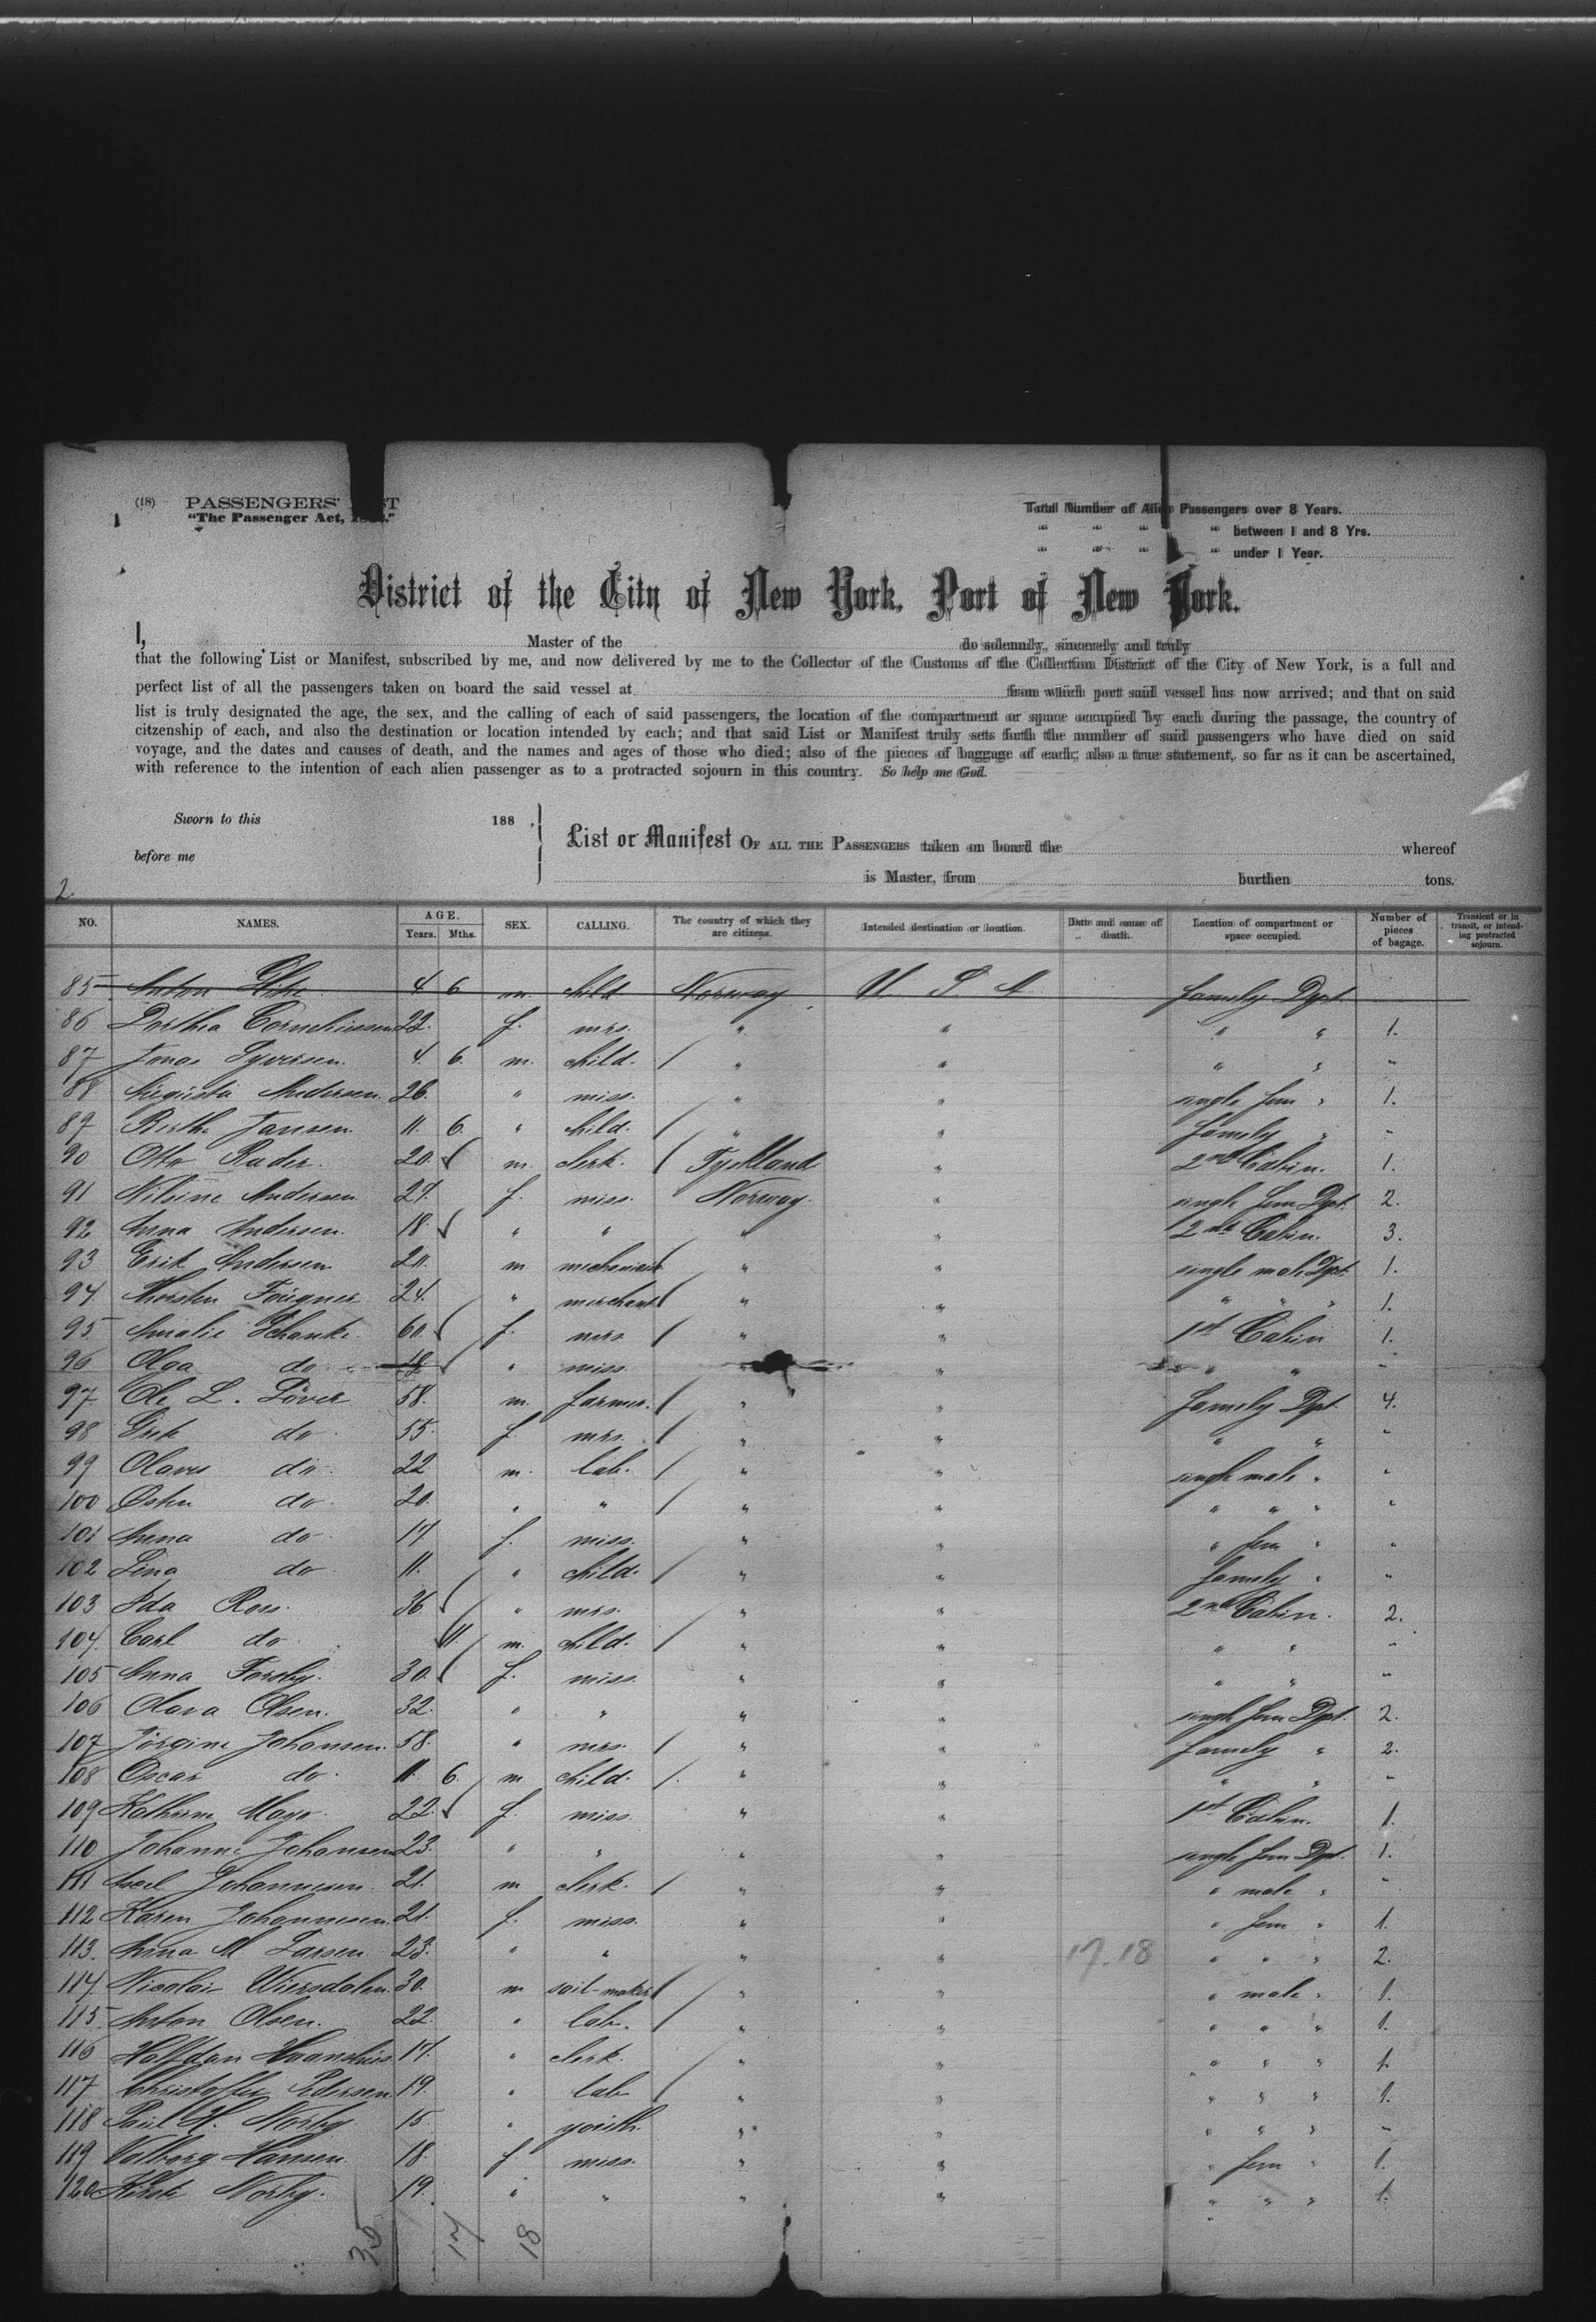 2.
(18) PASSENGERS'
"The Passenger Act,
Total Number of Alien Passengers over 8 Years.
" " " " between 1 and 8 Yrs.
" " " " under 1 Year.
District of the City of New York, Port of New York.
I, Master of the do solemnly, sincerely and truly
that the following List or Manifest, subscribed by me, and now delivered by me to the Collector of the Customs of the Collection District of the City of New York, is a full and
perfect list of all the passengers taken on board the said vessel at from which port said vessel has now arrived; and that on said
list is truly designated the age, the sex, and the calling of each of said passengers, the location of the compartment or space occupied by each during the passage, the country of
citzenship of each, and also the destination or location intended by each; and that said List or Manifest truly sets forth the number of said passengers who have died on said
voyage, and the dates and causes of death, and the names and ages of those who died; also of the pieces of baggage of each; also a true statement, so far as it can be ascertained,
with reference to the intention of each alien passenger as to a protracted sojourn in this country. So help me God.
Sworn to this 188 ,
before me
List or Manifest OF ALL THE PASSENGERS taken on board the whereof
is Master, from burthen tons.
2.
NO. NAMES. AGE. Years. Mths. SEX. CALLING. The country of which they are citizens. Intended destination or location. Date and cause of death. Location of compartment or space occupied. Number of pieces of bagage. Transient or in transit, or intending protracted sojourn.
85 Anton 4 6 m. child Norway U. S. A famely Dpt.
86 Dorthea Corneliussen 22. f. mrs. " " " " 1.
87 Jonas Syversen. 4. 6. m. child. " " " " "
88 Augusta Andersen. 26. " miss. " " single fem " 1.
89 Berthe Jansen. 11. 6. " child. " " famely " "
90 Otto Rader. 20. m. clerk. Tyskland " 2nd Cabin. 1.
91 Nilsine Andersen 27. f. miss. Norway. " single fem Dpt. 2.
92 Anna Andersen. 18. " " " " 2nd Cabin. 3.
93 Erik Andersen 20. m mechanick " " single male Dpt. 1.
94 Thorsten 24. " merchant " " " " " 1.
95 Amalie Schanke. 60. f. mrs " " 1st Cabin 1.
96 Olga do 18 " miss. " " " " "
97 Ole L. Löver 58. m. farmer. " " famely Dpt. 4.
98 do 55. f. mrs. " " " " "
99 Olaves do 22 m. lab. " " single male " "
100 Osten do 20. " " " " " " " "
101 Anna do 17 f. miss. " " " fem " "
102 Lina do 11. " child. " " famely " "
103 Ida Ross. 36 " mrs. " " 2nd Cabin. 2.
104. Carl do 11. m. child. " " " " "
105 Anna Forsby. 30. f. miss. " " " " "
106 Olava Olsen. 32. " " " " single fem Dpt. 2.
107 Jörgine Johansen. 58. " mrs. " " famely " 2.
108 Oscar do 11. 6. m child. " " " " "
109 Kathrine 22. f. miss. " " 1st Cabin. 1.
110 Johanne Johansen 23. " " " " single fem Dpt. 1.
111 Axel Johannesen 21. m clerk. " " " male " "
112 Karen Johannesen. 21. f. miss. " " " fem " 1.
113. Anna M. Larsen 23. " " " " 17-18 " " " 2.
114. Nicolai Wiersdalen. 30. m sail-maker " " " male " 1.
115. Anton Olsen. 22. " lab. " " " " " 1.
116 Halfdan 17. " clerk. " " " " " 1.
117 Christoffer Pedersen. 19. " lab " " " " " 1.
118 Paul H. Norby 15. " youth. " " " " " "
119 Valborg Hansen. 18. f. miss. " " " fem " 1.
120 Norby. 19. " " " " " " " 1.
35 17 18